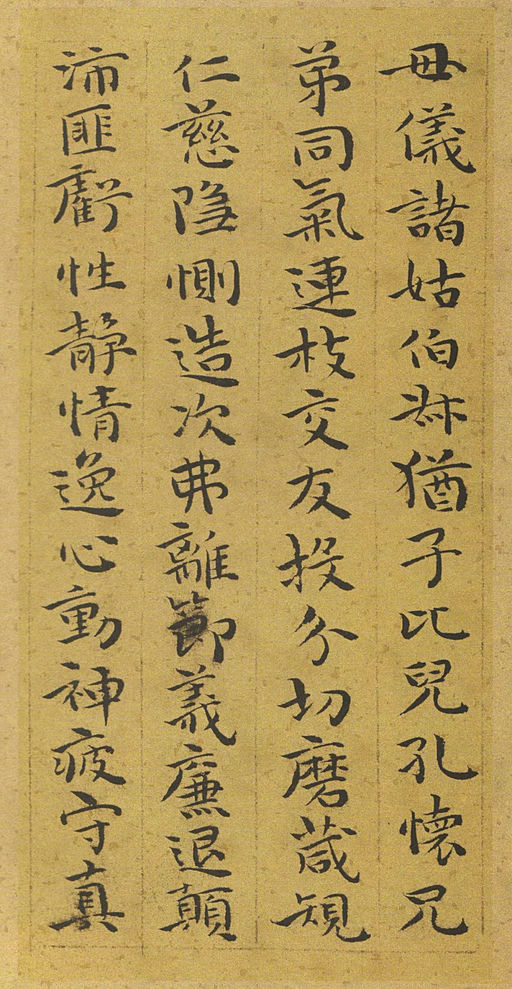 母儀諸姑伯叔猶子比兒孔懷兄
弟同氣連枝交友投分切磨箴規
仁慈隱惻造次弗離節義廉退顛
沛匪虧性靜情逸心動神疲守真